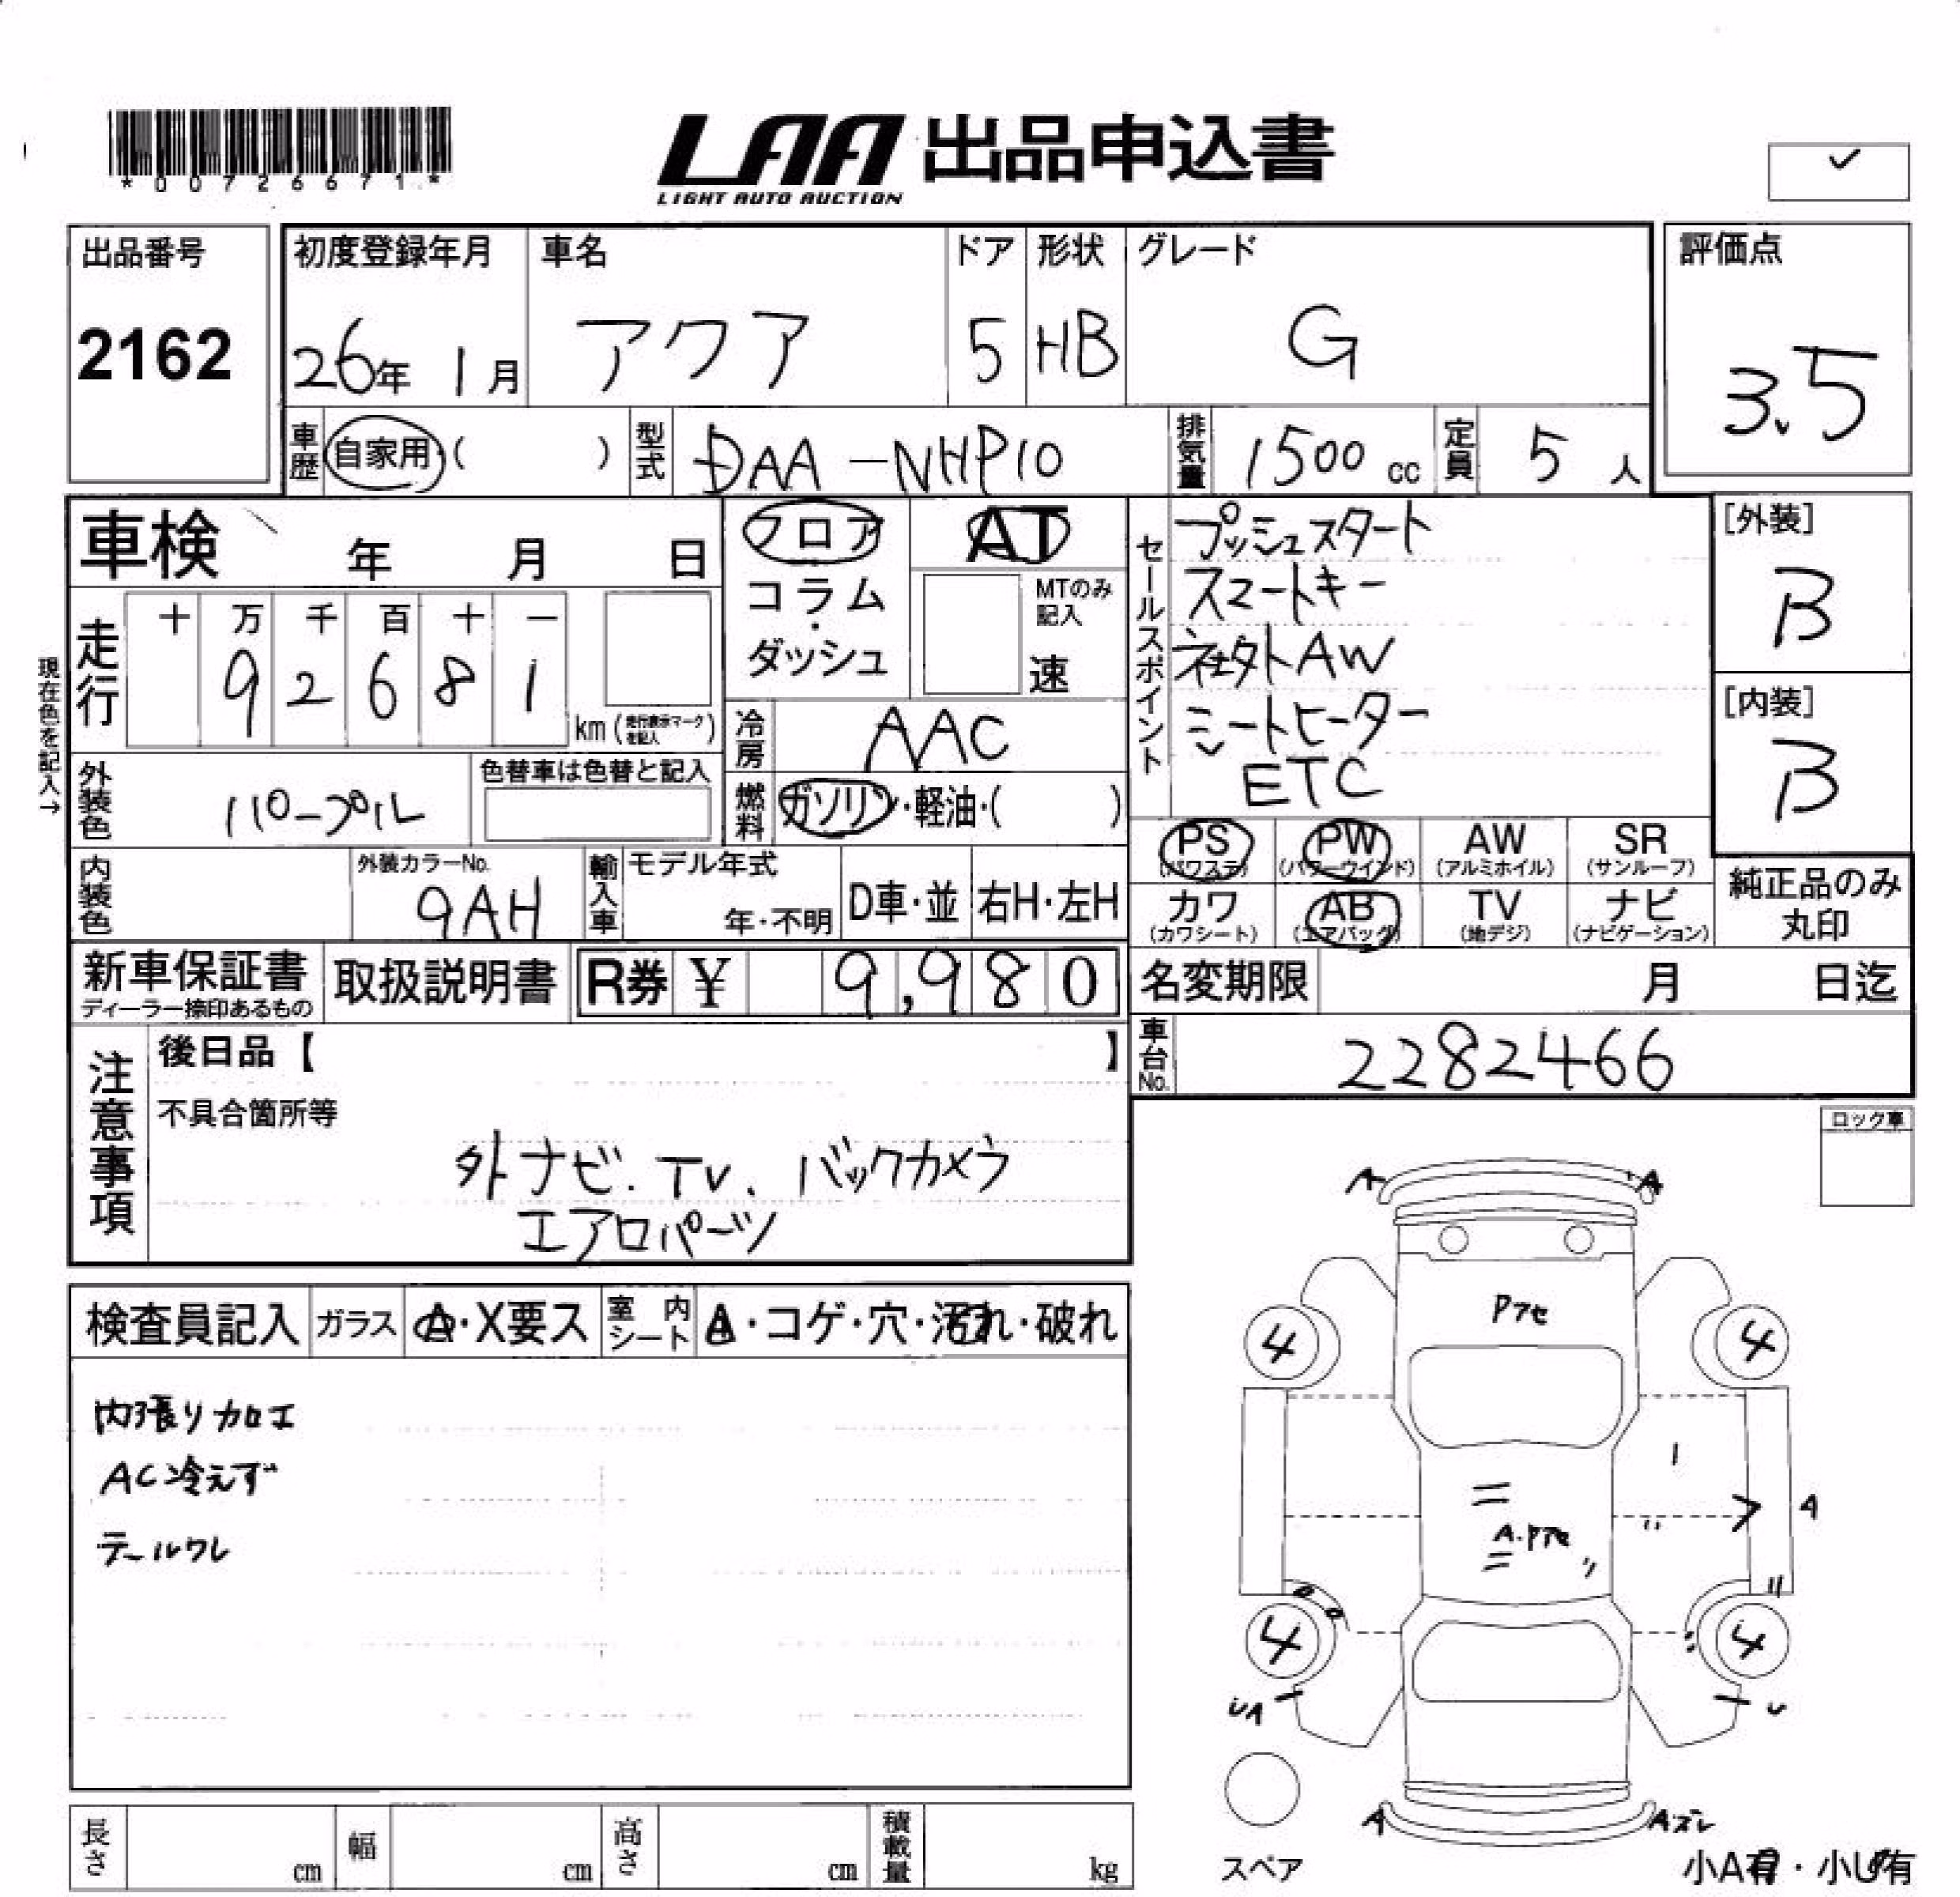 *00726671*
LAA 出品申込書
LIGHT AUTO AUCTION
出品番号
2162
初度登録年月
26年 1月
車名
アクア
ドア
5
形状
HB
グレード
G
評価点
3.5
車歴 自家用 ( )
型式 DAA-NHP10
排気量 1500 cc
定員 5 人
車検 年 月 日
走行 十 万 千 百 十 一
9 2 6 8 1
km (走行表示マークを記入)
現在色を記入→
外装色 パープル
色替車は色替と記入
内装色
外装カラーNo.
9AH
輸入車 モデル年式
年・不明
D車・並
右H・左H
フロア
コラム
・
ダッシュ
AT
MTのみ
記入
速
冷房 AAC
燃料 ガソリン・軽油・( )
セールスポイント
プッシュスタート
スマートキー
社外AW
シートヒーター
ETC
[外装]
B
[内装]
B
PS
(パワステ)
PW
(パワーウインド)
AW
(アルミホイル)
SR
(サンルーフ)
カワ
(カワシート)
AB
(エアバッグ)
TV
(地デジ)
ナビ
(ナビゲーション)
純正品のみ
丸印
新車保証書
ディーラー捺印あるもの
取扱説明書
R券 ¥ 9,980
名変期限 月 日迄
車台No. 2282466
注意事項
後日品【 】
不具合箇所等
外ナビ.TV.バックカメラ
エアロパーツ
ロック車
検査員記入
ガラス A・X要ス
室内シート A・コゲ・穴・汚れ・破れ
内張り加工
AC冷えず
テールワレ
A A
Pアセ
4 4
A
A.Pアセ
4 4
UA U
A Aズレ
スペア
小A有・小U有
長さ cm
幅 cm
高さ cm
積載量 kg